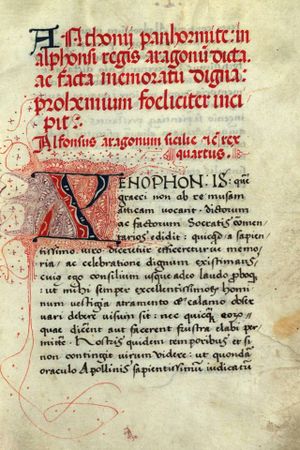 AnthonÿJ panhormite: in
alphonsi regis aragonū dicta
ac facta memoratu digna:
prohemium foeliciter inci
pit:
Alfonsus aragonum sicilie &c rex
quartus.
XENOPHON. IS: quē
graeci non ab re musam
atticam vocant: dictorum
ac factorum Socratis comen
tarios edidit: quicqd a sapien
tissimo viro diceretur efficereturue memoria
ac celebratione dignum existimans
cuius ego consilium usqueadeo laudo proboq;
ut mihi semper excellentissimos homi
num vestigia atramento & calamo obser
vari debere visum sit: nec quicq̄ eorum
quae dicerent aut facerent frustra elabi per
mittere. Nostris quidem temporibus et si
non contingit virum videre: ut quondam
oraculo Apollinis sapientissimum iudicatum